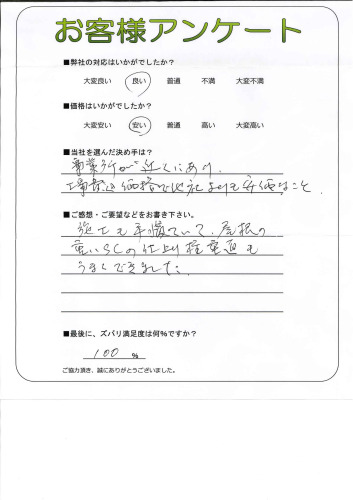 お客様アンケート
■弊社の対応はいかがでしたか？
大変良い 良い 普通 不満 大変不満
■価格はいかがでしたか？
大変安い 安い 普通 高い 大変高い
■当社を選んだ決め手は？
営業所が近くにあり
工場発の価格で他社よりも安価なこと。
■ご感想・ご要望などをお書き下さい。
施工も手慣れていて、屋根の
重いSCの仕上
うまくできました。
■最後に、ズバリ満足度は何％ですか？
100 %
ご協力頂き、誠にありがとうございました。